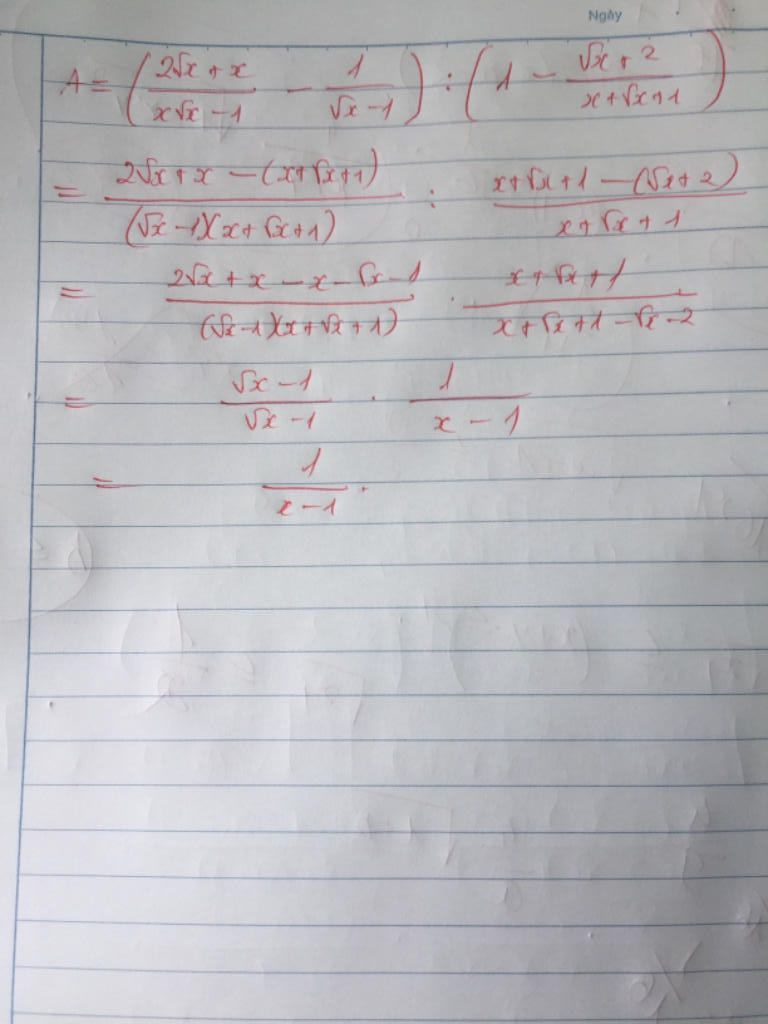 Ngày
A = ( (2√x + x)/(x√x - 1) - 1/(√x - 1) ) : ( 1 - (√x + 2)/(x + √x + 1) )
= (2√x + x - (x + √x + 1))/((√x - 1)(x + √x + 1)) : (x + √x + 1 - (√x + 2))/(x + √x + 1)
= (2√x + x - x - √x - 1)/((√x - 1)(x + √x + 1)) . (x + √x + 1)/(x + √x + 1 - √x - 2)
= (√x - 1)/(√x - 1) . 1/(x - 1)
= 1/(x - 1) .